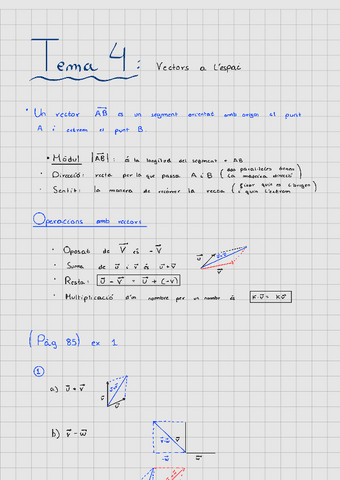 Tema 4: Vectors a l'espai
• Un vector AB⃗ és un segment orientat amb origen al punt
A i extrem al punt B.
• Mòdul |AB⃗|: és la longitud del segment AB
• Direcció: recta per la que passa A i B (dos paral·leles tenen la mateixa direcció)
• Sentit: la manera de recórrer la recta (fixar qui és l'origen i quin l'extrem)
Operaccions amb vectors
• Oposat de V⃗ és -V⃗
• Suma de u⃗ i v⃗ és u⃗+v⃗
• Resta: u⃗ - v⃗ = u⃗ + (-v)
• Multiplicació d'un nombre per un nombre és K·u⃗ = Ku⃗
(Pàg 85) ex 1
1
a) u⃗ + v⃗
b) v⃗ - w⃗